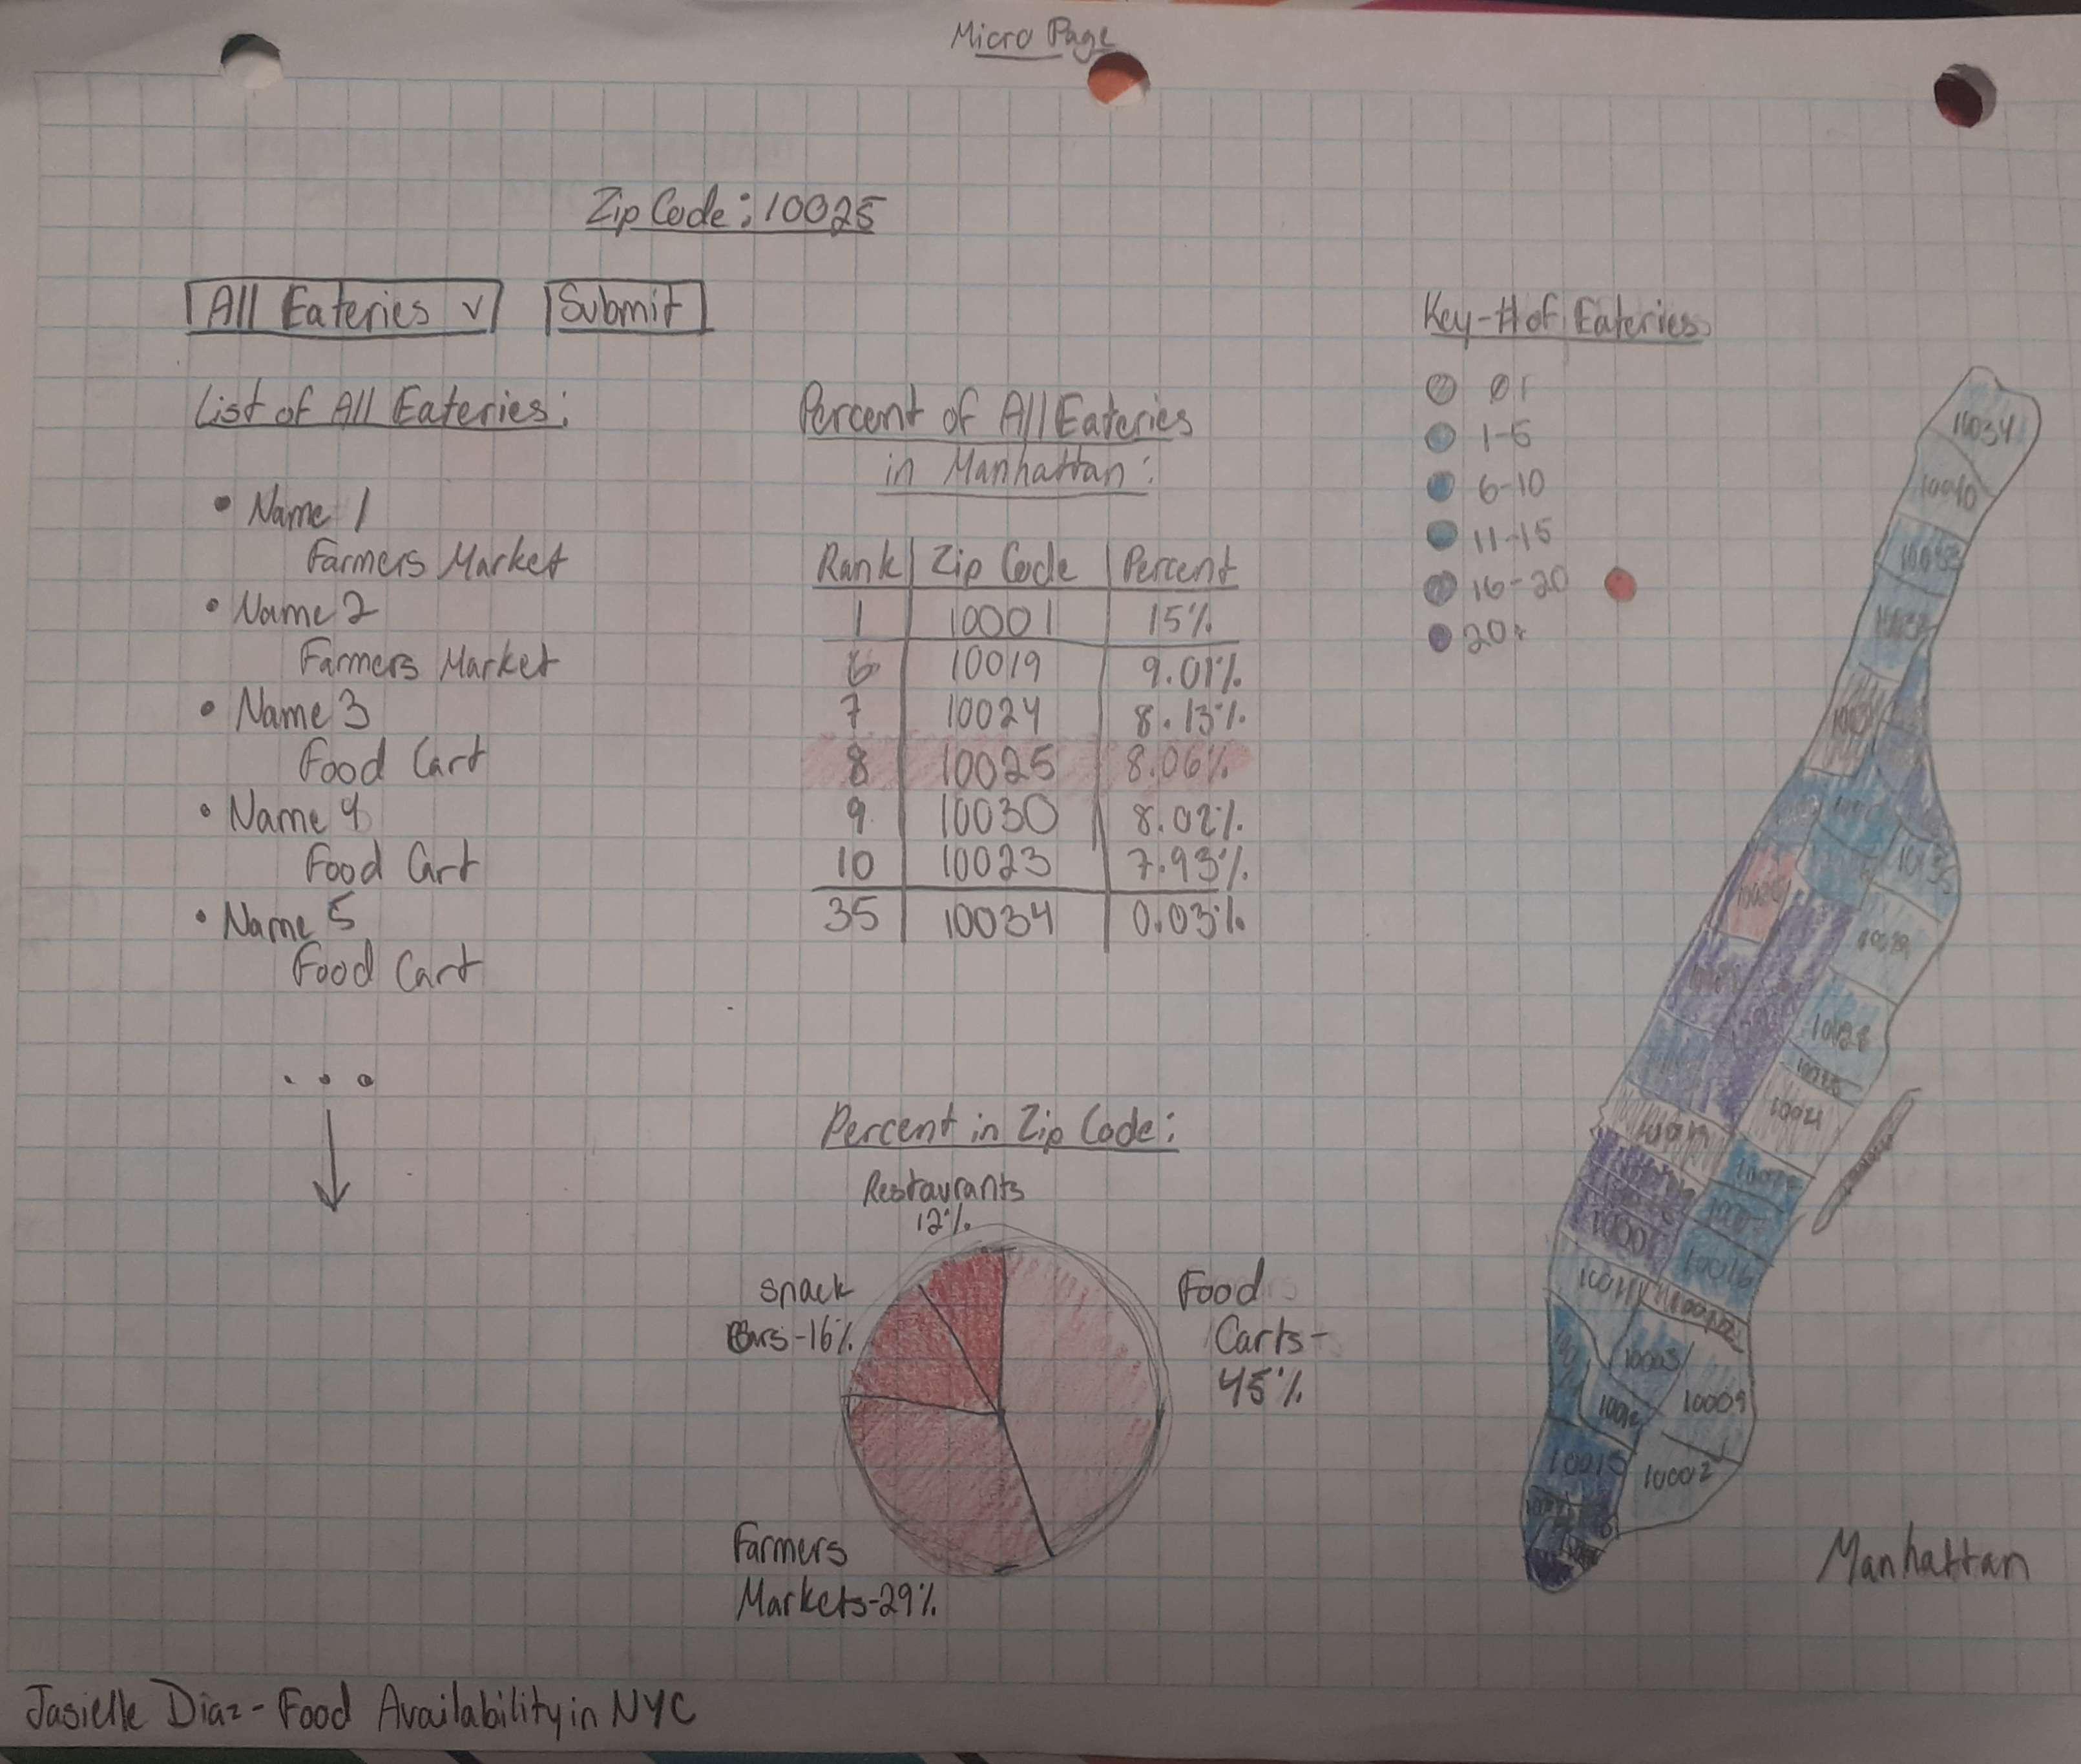 Micro Page
Zip Code: 10025
All Eateries v
Submit
List of All Eateries:
• Name 1
Farmers Market
• Name 2
Farmers Market
• Name 3
Food Cart
• Name 4
Food Cart
• Name 5
Food Cart
...
Percent of All Eateries
in Manhattan:
Rank Zip Code Percent
1 10001 15%
6 10019 9.01%
7 10024 8.13%
8 10025 8.06%
9 10030 8.02%
10 10023 7.93%
35 10034 0.03%
Percent in Zip Code:
Restaurants
12%
Snack
Bars-16%
Food
Carts-
45%
Farmers
Markets-29%
Key-# of Eateries
1-5
6-10
11-15
16-20
20+
10034
10040
10128
10021
10001
10016
10011
10003
10009
10002
Manhattan
Jasielle Diaz - Food Availability in NYC